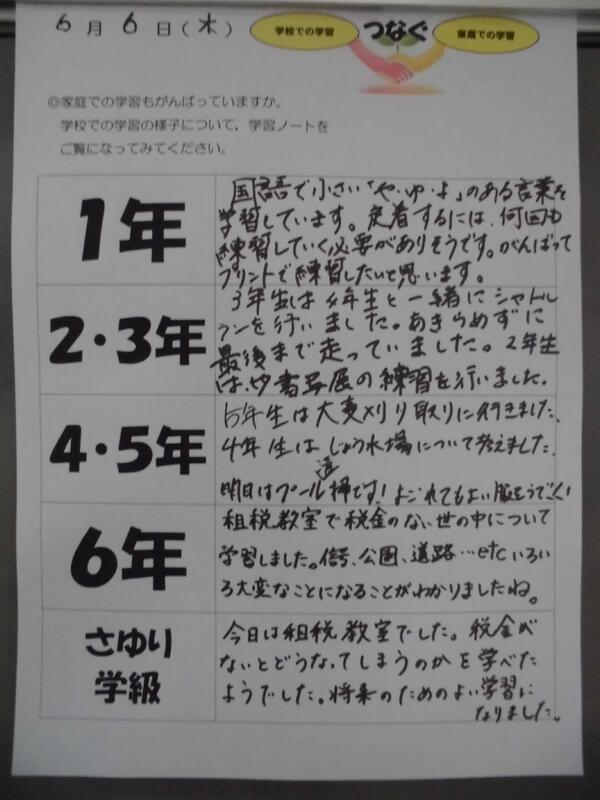 6月6日(木)
学校での学習
つなぐ
家庭での学習
◎家庭での学習もがんばっていますか。
学校での学習の様子について、学習ノートを
ご覧になってみてください。
1年
国語で小さい「や・ゆ・よ」のある言葉を
学習しています。定着するには、何回も
練習していく必要がありそうです。がんばって
プリントで練習したいと思います。
2・3年
3年生は4年生と一緒にシャトル
ランを行いました。あきらめずに
最後まで走っていました。2年生
は、書写展の練習を行いました。
4・5年
5年生は大麦刈り取りに行きました。
4年生はじょう水場について考えました。
明日はプール掃です!よごれてもよい服そうで
6年
租税教室で税金のない世の中について
学習しました。信号、公園、道路…etcいろい
ろ大変なことになることがわかりましたね。
さゆり
学級
今日は租税教室でした。税金が
ないとどうなってしまうのかを学べた
ようでした。将来のためのよい学習に
なりました。